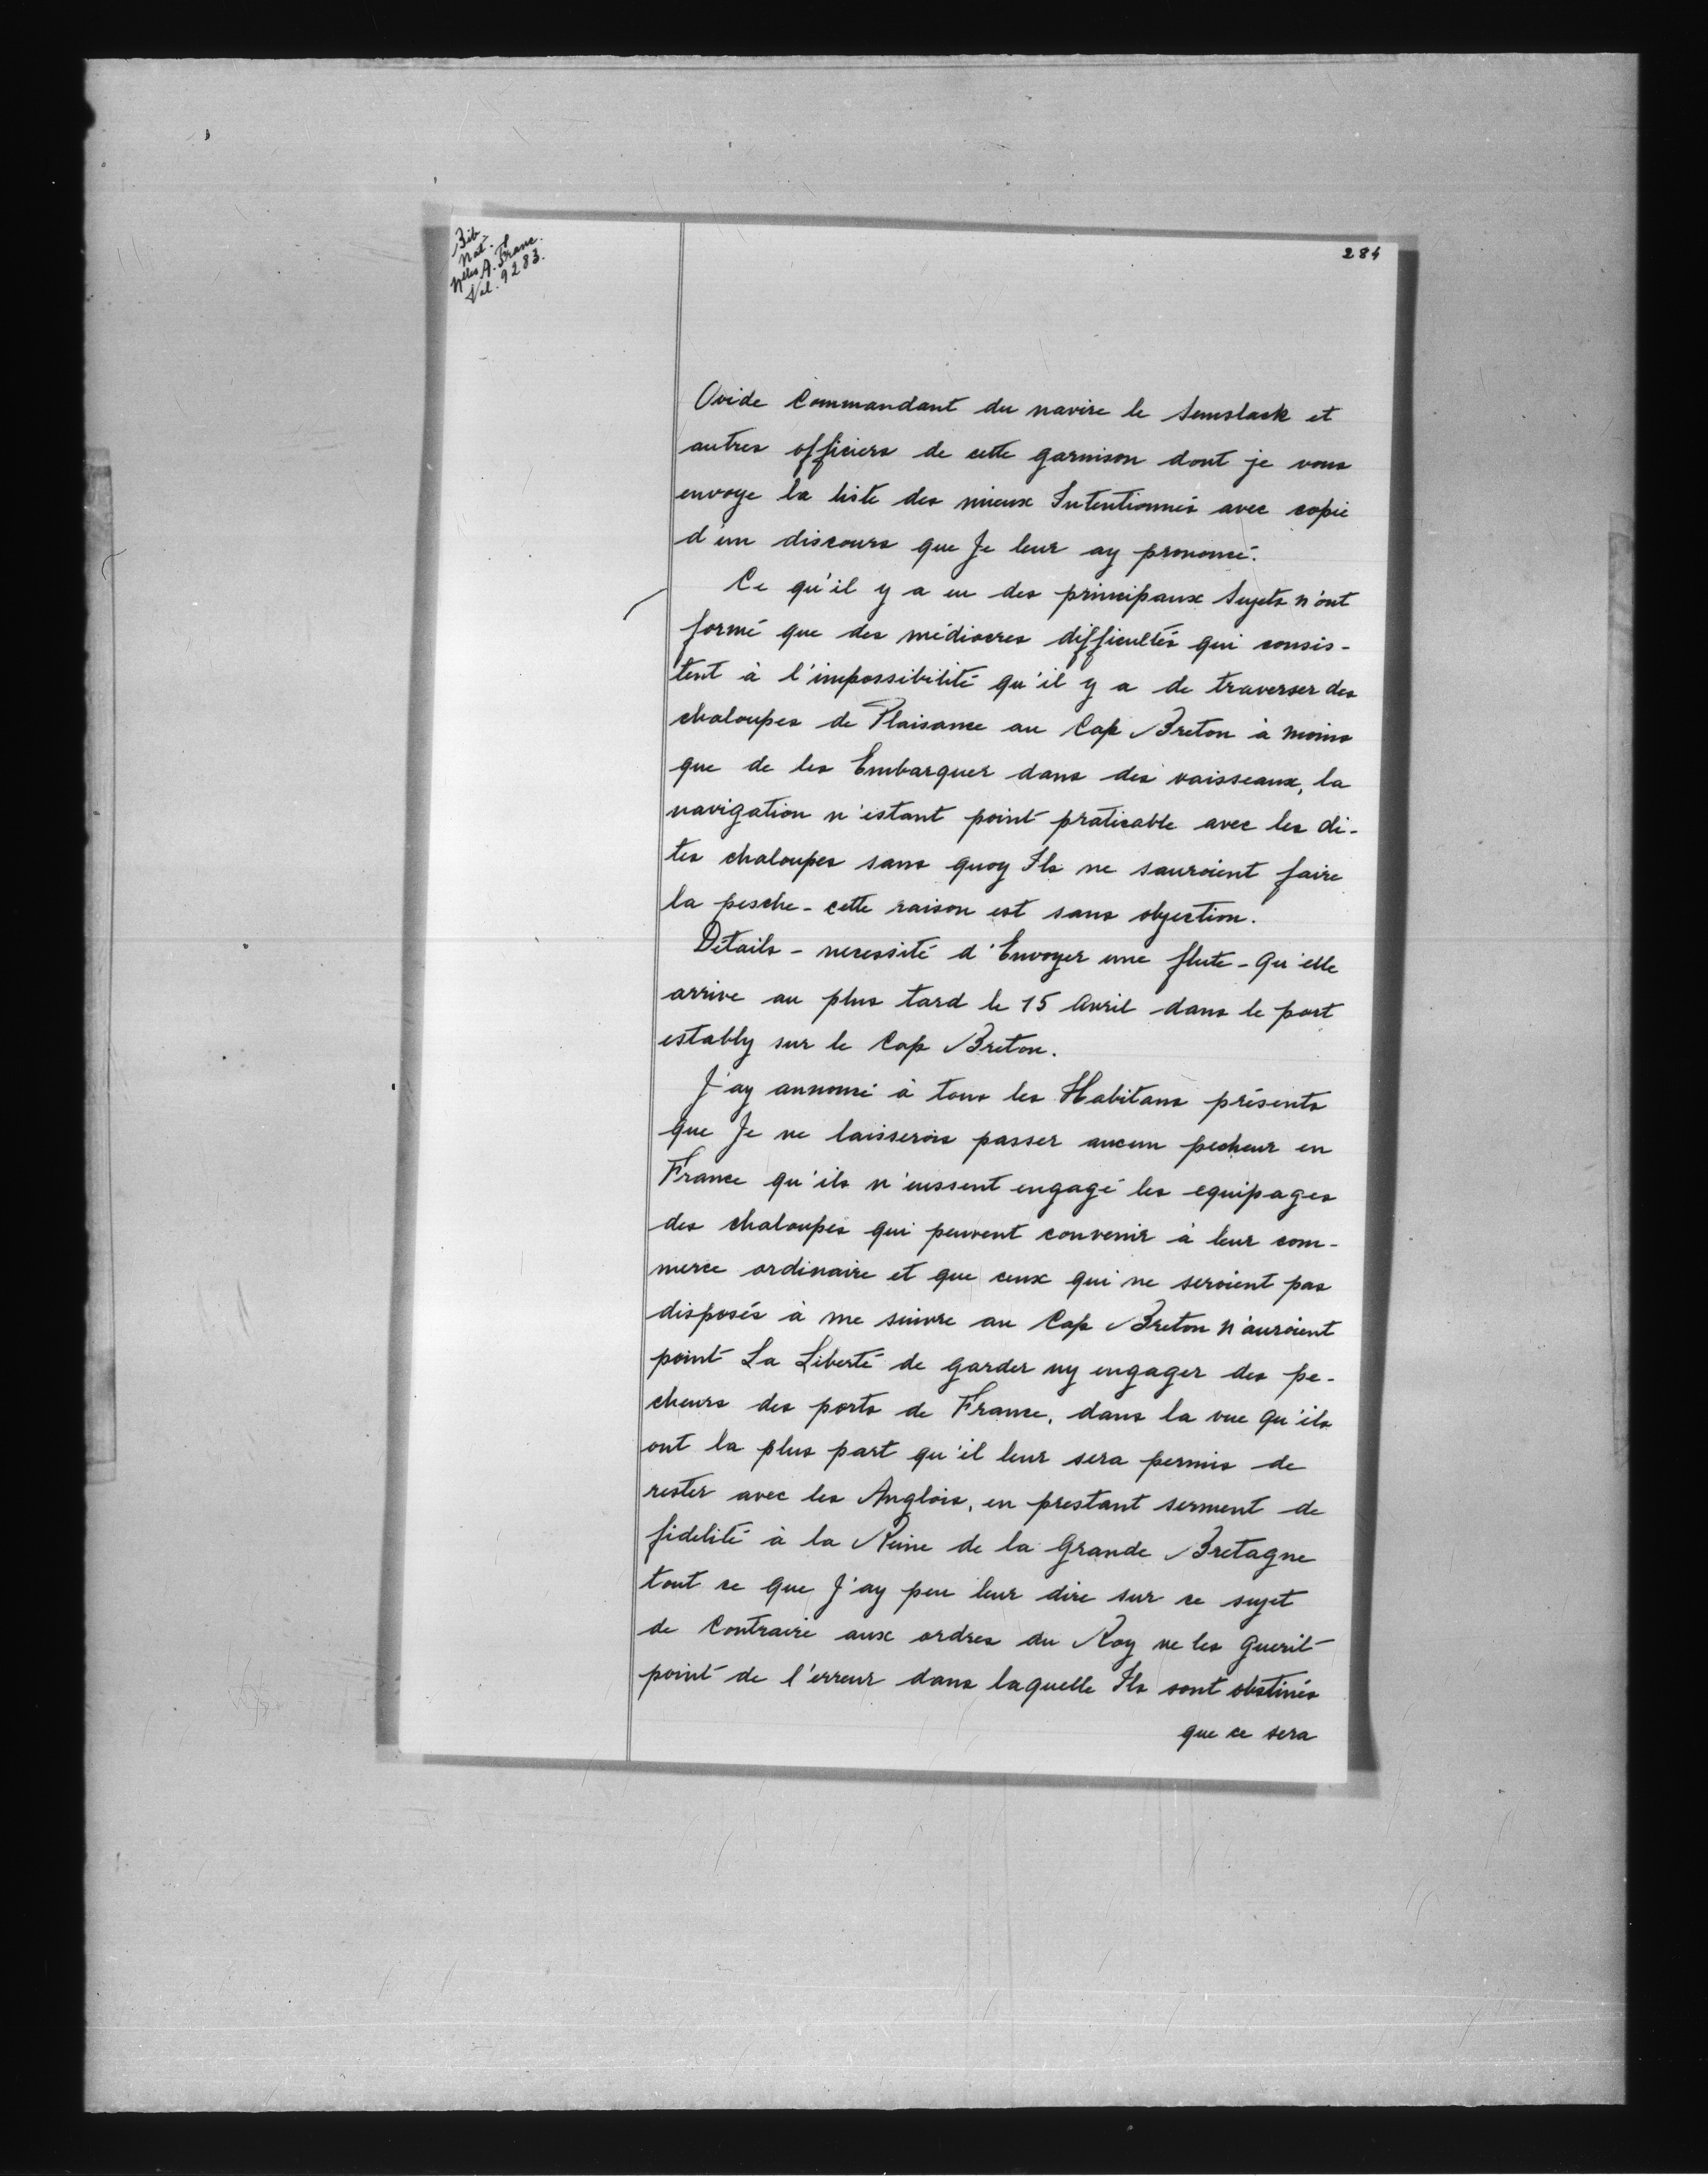 Bib
Nat.
Nelles A. Franc.
Vol. 9283.
284
Ovide Commandant du navire le Semslack et
autres officiers de cette garnison dont je vous
envoye la liste des mieux Intentionnés avec copie
d'un discours que Je leur ay prononcé.
Ce qu'il y a eu des principaux Sujets n'ont
formé que des médiocres difficultés qui consis-
tent à l'impossibilité qu'il y a de traverser des
chaloupes de Plaisance au Cap Breton à moins
que de les Embarquer dans des vaisseaux, la
navigation n'estant point praticable avec les di-
tes chaloupes sans quoy Ils ne sauroient faire
la pesche - cette raison est sans objection.
Détails - necessité d'Envoyer une flute - Qu'elle
arrive au plus tard le 15 Avril dans le port
estably sur le Cap Breton.
J'ay annoncé à tous les Habitans présents
que Je ne laisserois passer aucun pecheur en
France qu'ils n'eussent engagé les equipages
des chaloupes qui peuvent convenir à leur com-
merce ordinaire et que ceux qui ne seroient pas
disposés à me suivre au Cap Breton n'auroient
point La Liberté de garder ny engager des pe-
cheurs des ports de France, dans la vue qu'ils
ont la plus part qu'il leur sera permis de
rester avec les Anglois, en prestant serment de
fidelité à la Reine de la Grande Bretagne
tout ce que J'ay peu leur dire sur ce sujet
de Contraire aux ordres du Roy ne les guerit
point de l'erreur dans laquelle Ils sont obstinés
que ce sera